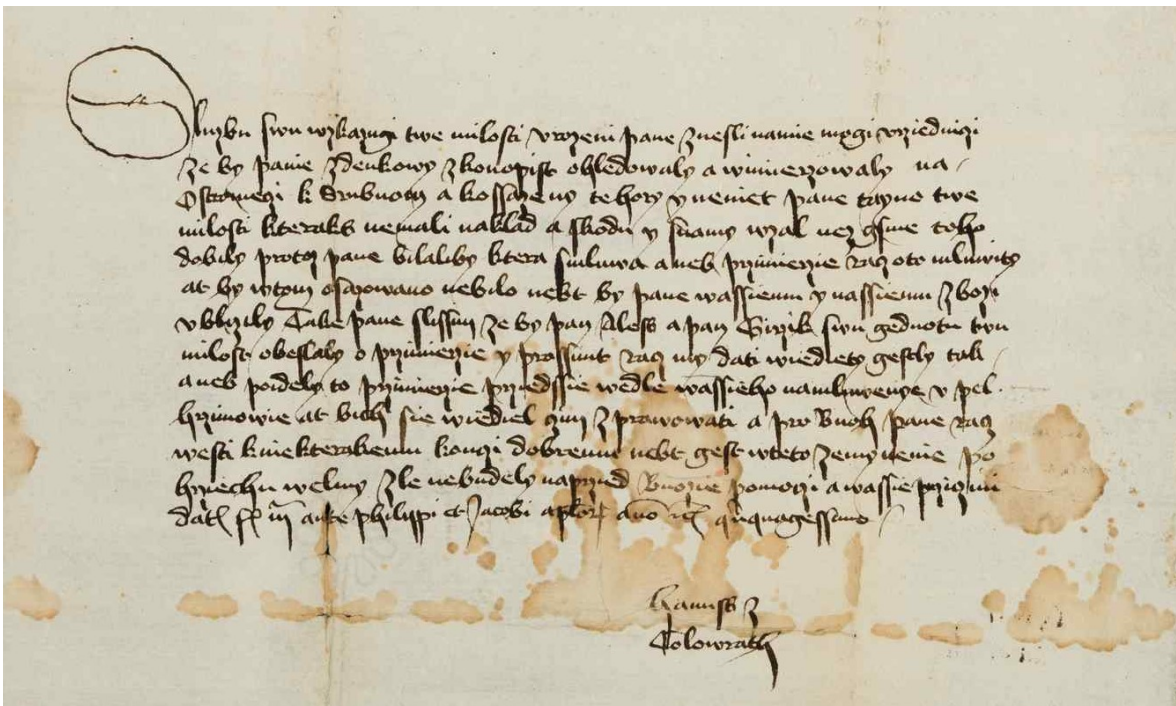 Sluzbu swu wzkazugi twe milosti vrozeni pane znesli namie mogi vrziednizi
ze by panie Zdenkowy z konopist ohledowaly a wimierzowaly na
Ostromezi k Srubnotu a kossazeny tehory y neniet pane tayno twe
milosti kteraks nemali naklad a skodu y snamy wzal nez gsme toho
dobily protoz pane bilaliby ktera smluwa aneb przimierzie racz oto mluwity
at by wtom osazowano nebilo nebt by pane wassiemu y nassiemu zbozi
vblizily Take pane slissim ze by pan Aless a pan Girzik swu gednotu twu
milost obeslaly o przimierzie y prossimt racz my dati wiedieti gestly tak
aneb poidely to przimierzie przedssie wedle wassieho namluwenye v pel
hrzimowie at bich sie wiediel czim zprawowati a pro Buoh pane racz
westi kniekterakemu konczi dobremu nebt gest wteto zemy nenie po
hrziechu welmy zle nebudely naprzied Buozie pomoczi a wassie prziczini
dat f iii ante philippi et Jacobi aplor anno rc ququagessimo
Hanuss z
Colowrath